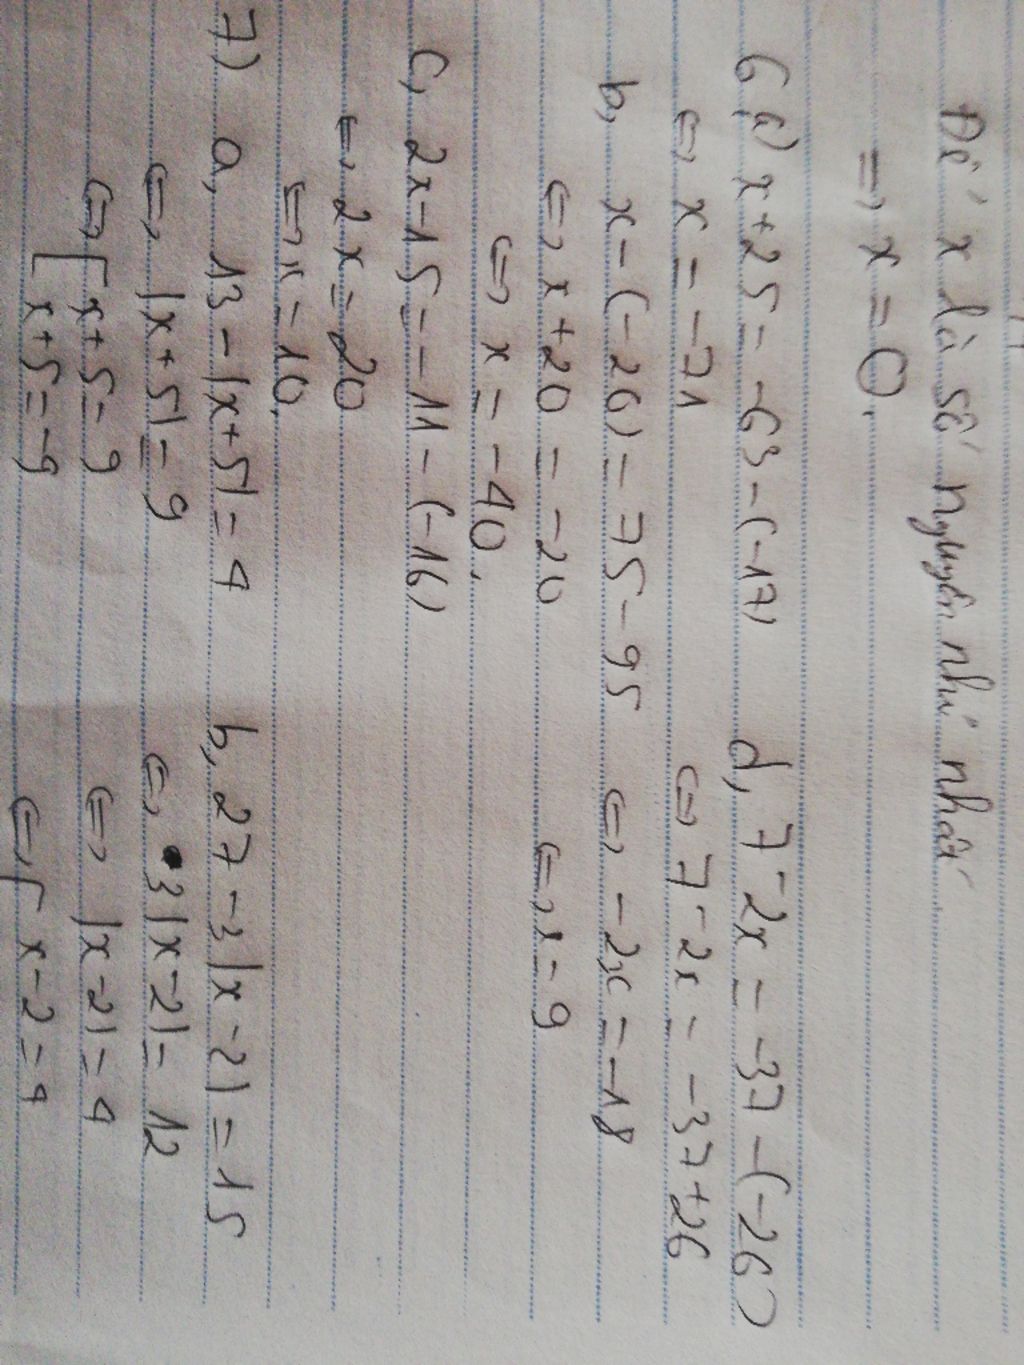 Để x là số nguyên nhỏ nhất
=> x = 0.
6, a) x + 25 = -63 - (-17)
<=> x = -71
b, x - (-20) = 75 - 95
<=> x + 20 = -20
<=> x = -40.
c, 2x - 15 = -11 - (-16)
<=> 2x = 20
<=> x = 10.
d, 7 - 2x = -37 - (-26)
<=> 7 - 2x = -37 + 26
<=> -2x = -18
<=> x = 9
7) a, 13 - |x + 5| = 4
<=> |x + 5| = 9
<=> [ x + 5 = 9
x + 5 = -9
b, 27 - 3|x - 2| = 15
<=> 3|x - 2| = 12
<=> |x - 2| = 4
<=> [ x - 2 = 4